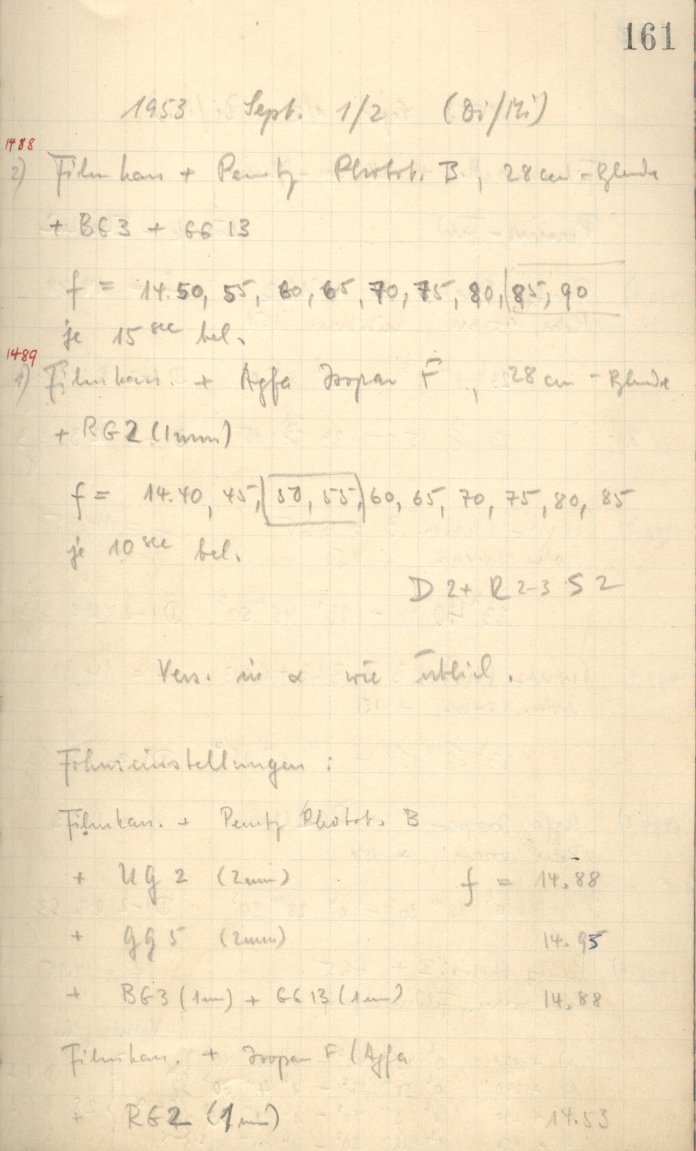 161
1953 Sept. 1/2 (Di/Mi)
1488
2) Filmkam + Perutz Photot. B, 28 cm-Blende
+ BG3 + GG13
f = 14.50, 55, 60, 65, 70, 75, 80, 85, 90
je 15 sec bel.
1489
1) Filmkam. + Agfa Isopan F, 28 cm-Blende
+ RG2 (1mm)
f = 14.40, 45, 50, 55, 60, 65, 70, 75, 80, 85
je 10 sec bel.
D 2+ R 2-3 S 2
Vers. in α wie üblich.
Filmkam. + Perutz Photot. B
+ UG 2 (2mm) f = 14.88
+ GG 5 (2mm) 14.95
+ BG3 (1mm) + GG13 (1mm) 14.88
Filmkam. + Isopan F (Agfa
+ RG2 (1mm) 14.53